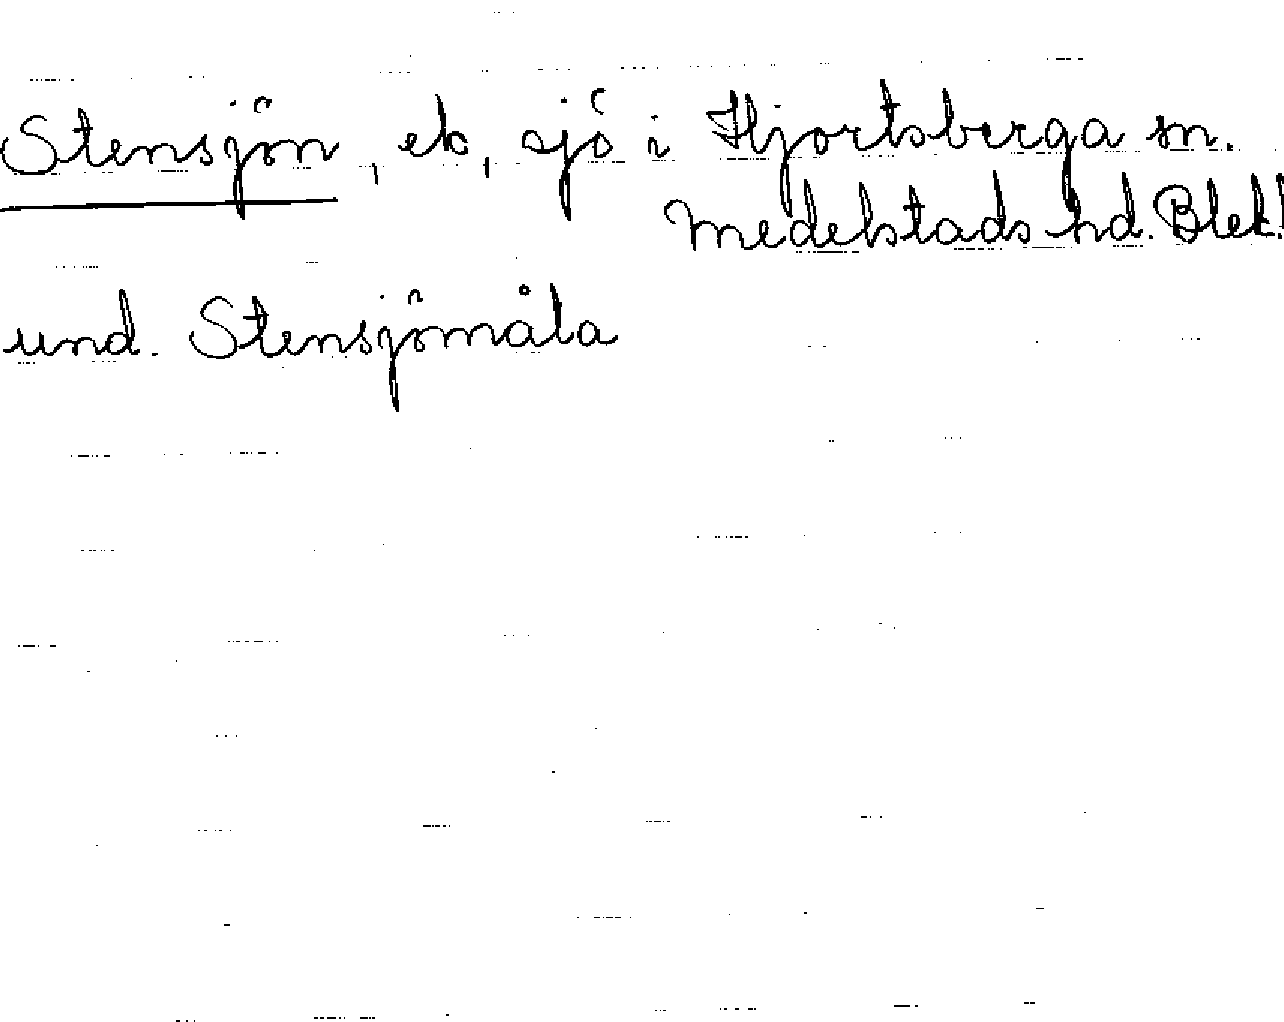 Stensjön, ek, sjö i Hjortsberga sn.
Medelstads hd. Blek.
und. Stensjömåla